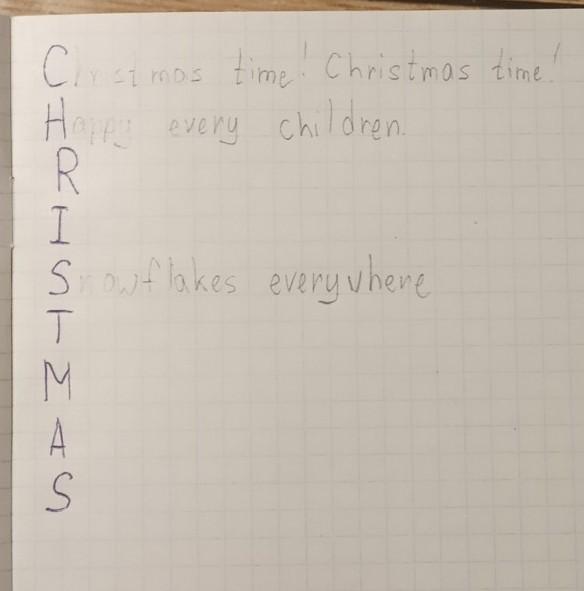 Christmas time! Christmas time!
Happy every children.
R
I
Snowflakes everywhere
T
M
A
S